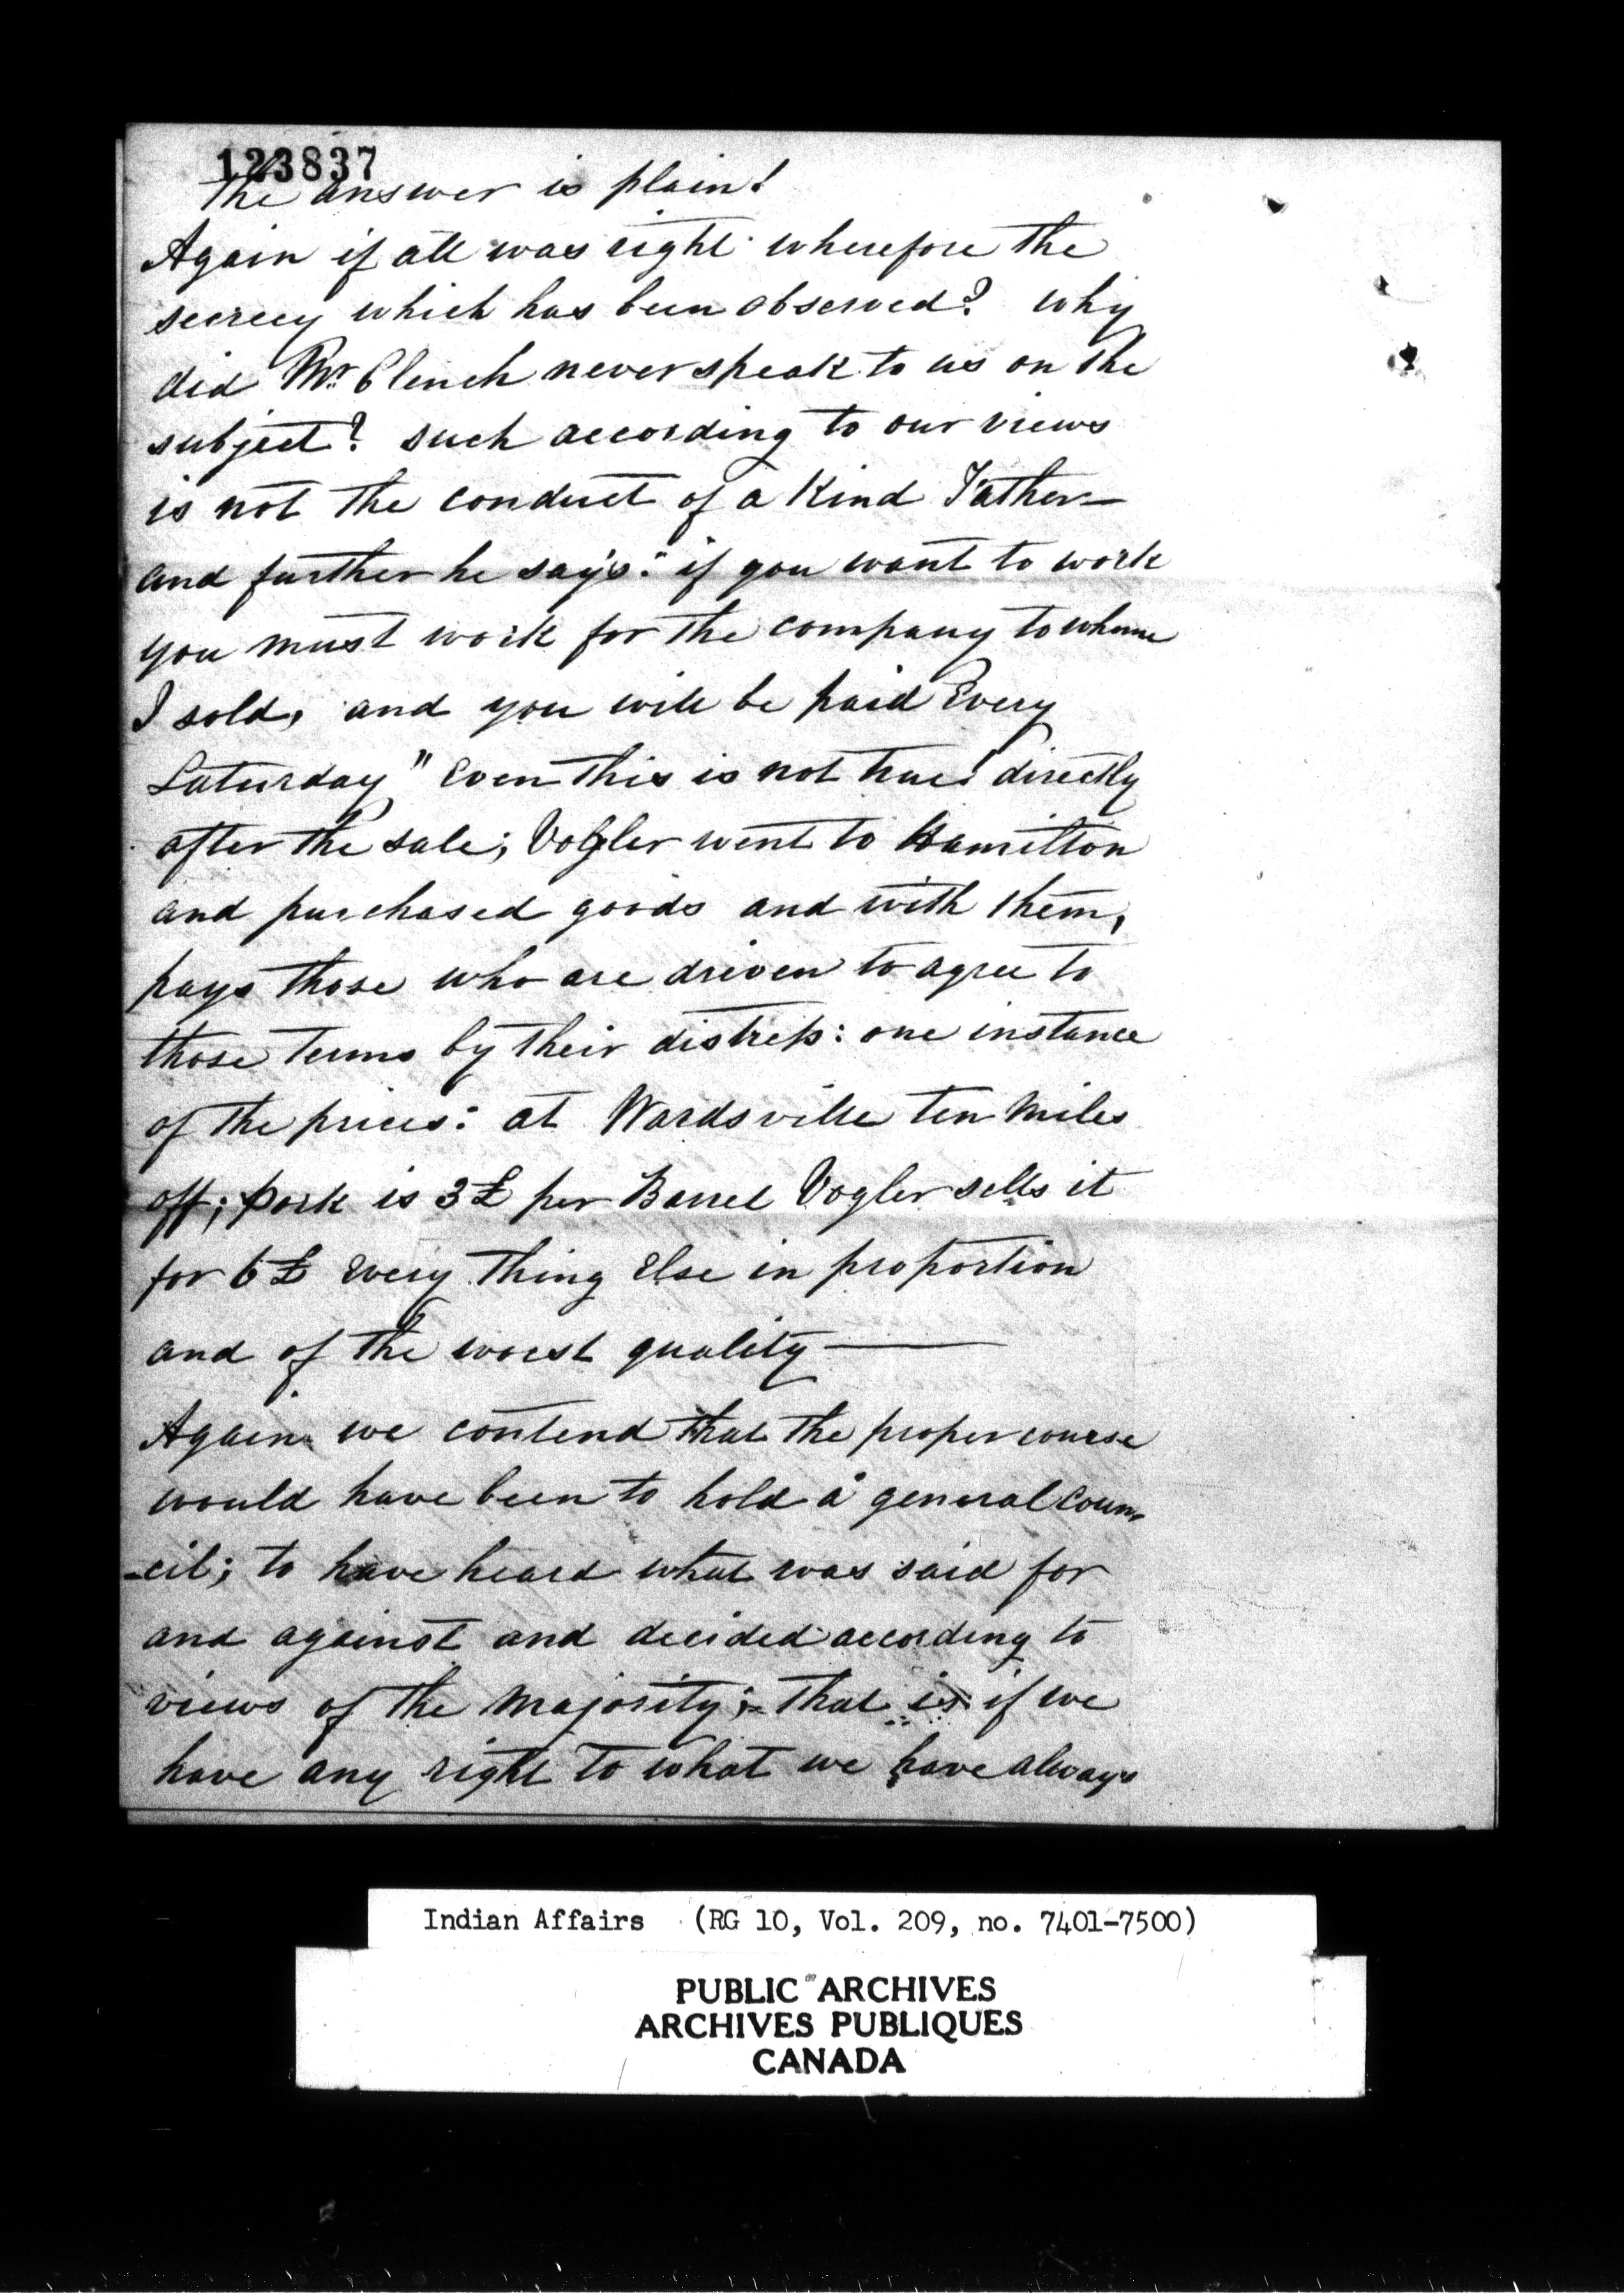 123837
The answer is plain!
Again if all was right wherefore the
secrecy which has been observed? Why
did Mr. Clench never speak to us on the
subject? such according to our views
is not the conduct of a Kind Father—
and further he says: "if you want to work
you must work for the company to whome
I sold, and you will be paid Every
Saturday" Even this is not true! directly
after the sale; Vogler went to Hamilton
and purchased goods and with them,
pays those who are driven to agree to
those terms by their distress: one instance
of the prices: at Wardsville ten miles
off; pork is 3£ per Barrel Vogler sells it
for 6£ Every thing Else in proportion
and of the worst quality —
Again we contend that the proper course
would have been to hold a general Coun-
-cil; to have heard what was said for
and against and decided according to
views of the Majority; - that is if we
have any right to what we have always
Indian Affairs (RG 10, Vol. 209, no. 7401-7500)
PUBLIC ARCHIVES
ARCHIVES PUBLIQUES
CANADA